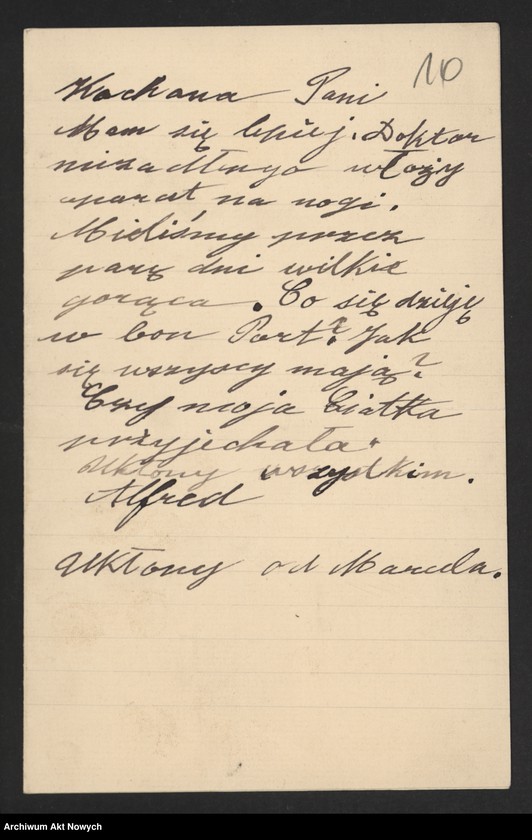 10
Kochana Pani
Mam się lepiej. Doktor
niezadługo włoży
aparat na nogi.
Mieliśmy przez
parę dni wilkie
gorąca. Co się dzieję
w bon Port? Jak
się wszyscy mają?
Czy moja Ciatka
przyjechała.
Ukłony wszystkim.
Alfred
Ukłony od Marcela.
Archiwum Akt Nowych